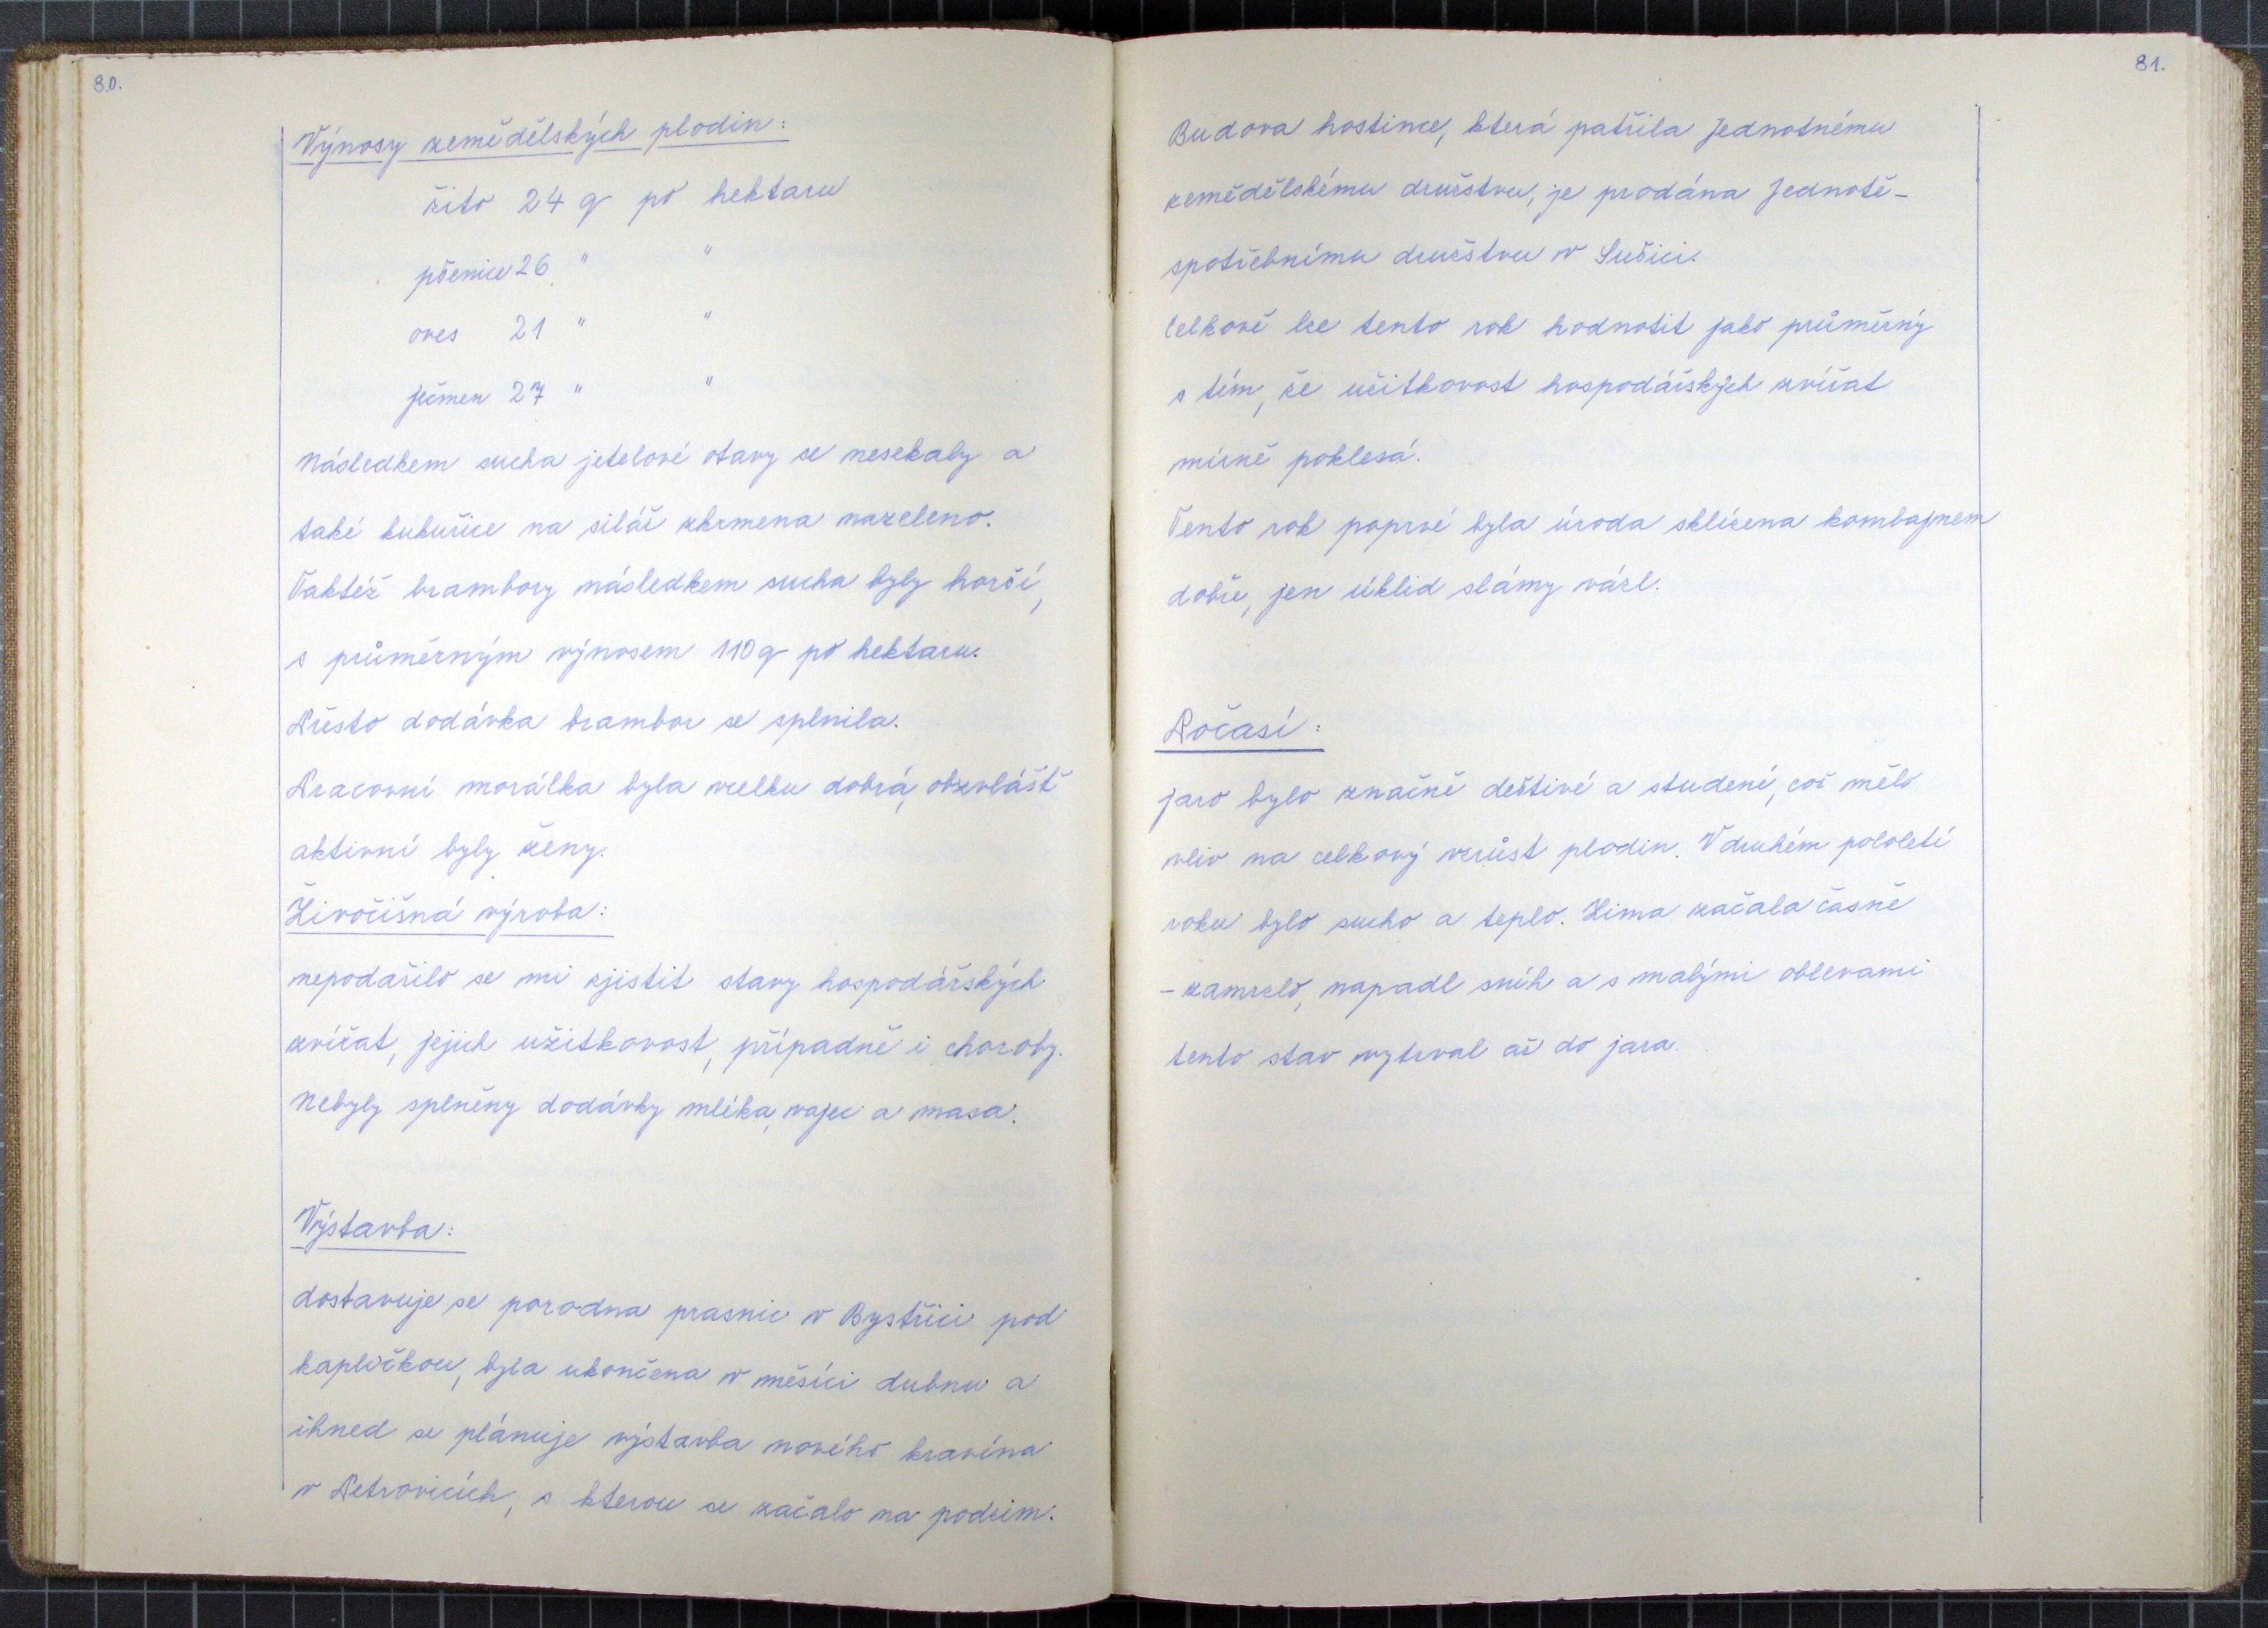 80.
Výnosy zemědělských plodin:
žito 24 q po hektaru
pšenice 26 " "
oves 21 " "
ječmen 27 " "
Následkem sucha jetelové otavy se nesekaly a
také kukuřice na siláž zkrmena nazeleno.
Taktéž brambory následkem sucha byly horší,
s průměrným výnosem 110 q po hektaru.
Přesto dodávka brambor se splnila.
Pracovní morálka byla vcelku dobrá, obzvlášť
aktivní byly ženy.
Živočišná výroba:
nepodařilo se mi zjistit stavy hospodářských
zvířat, jejich užitkovost, případně i choroby.
Nebyly splněny dodávky mléka, vajec a masa.
Výstavba:
dostavuje se porodna prasnic v Bystřici pod
kapličkou, byla ukončena v měsíci dubnu a
ihned se plánuje výstavba nového kravína
v Petrovicích, s kterou se začalo na podzim.
81.
Budova hostince, která patřila Jednotnému
zemědělskému družstvu, je prodána Jednotě-
spotřebnímu družstvu v Sušici.
Celkově lze tento rok hodnotit jako průměrný
s tím, že užitkovost hospodářských zvířat
mírně poklesá.
Tento rok poprvé byla úroda sklizena kombajnem
dobře, jen úklid slámy vázl.
Počasí:
jaro bylo značně deštivé a studené, což mělo
vliv na celkový vzrůst plodin. V druhém pololetí
roku bylo sucho a teplo. Zima začala časně
- zamrzlo, napadl sníh a s malými oblevami
tento stav vytrval až do jara.